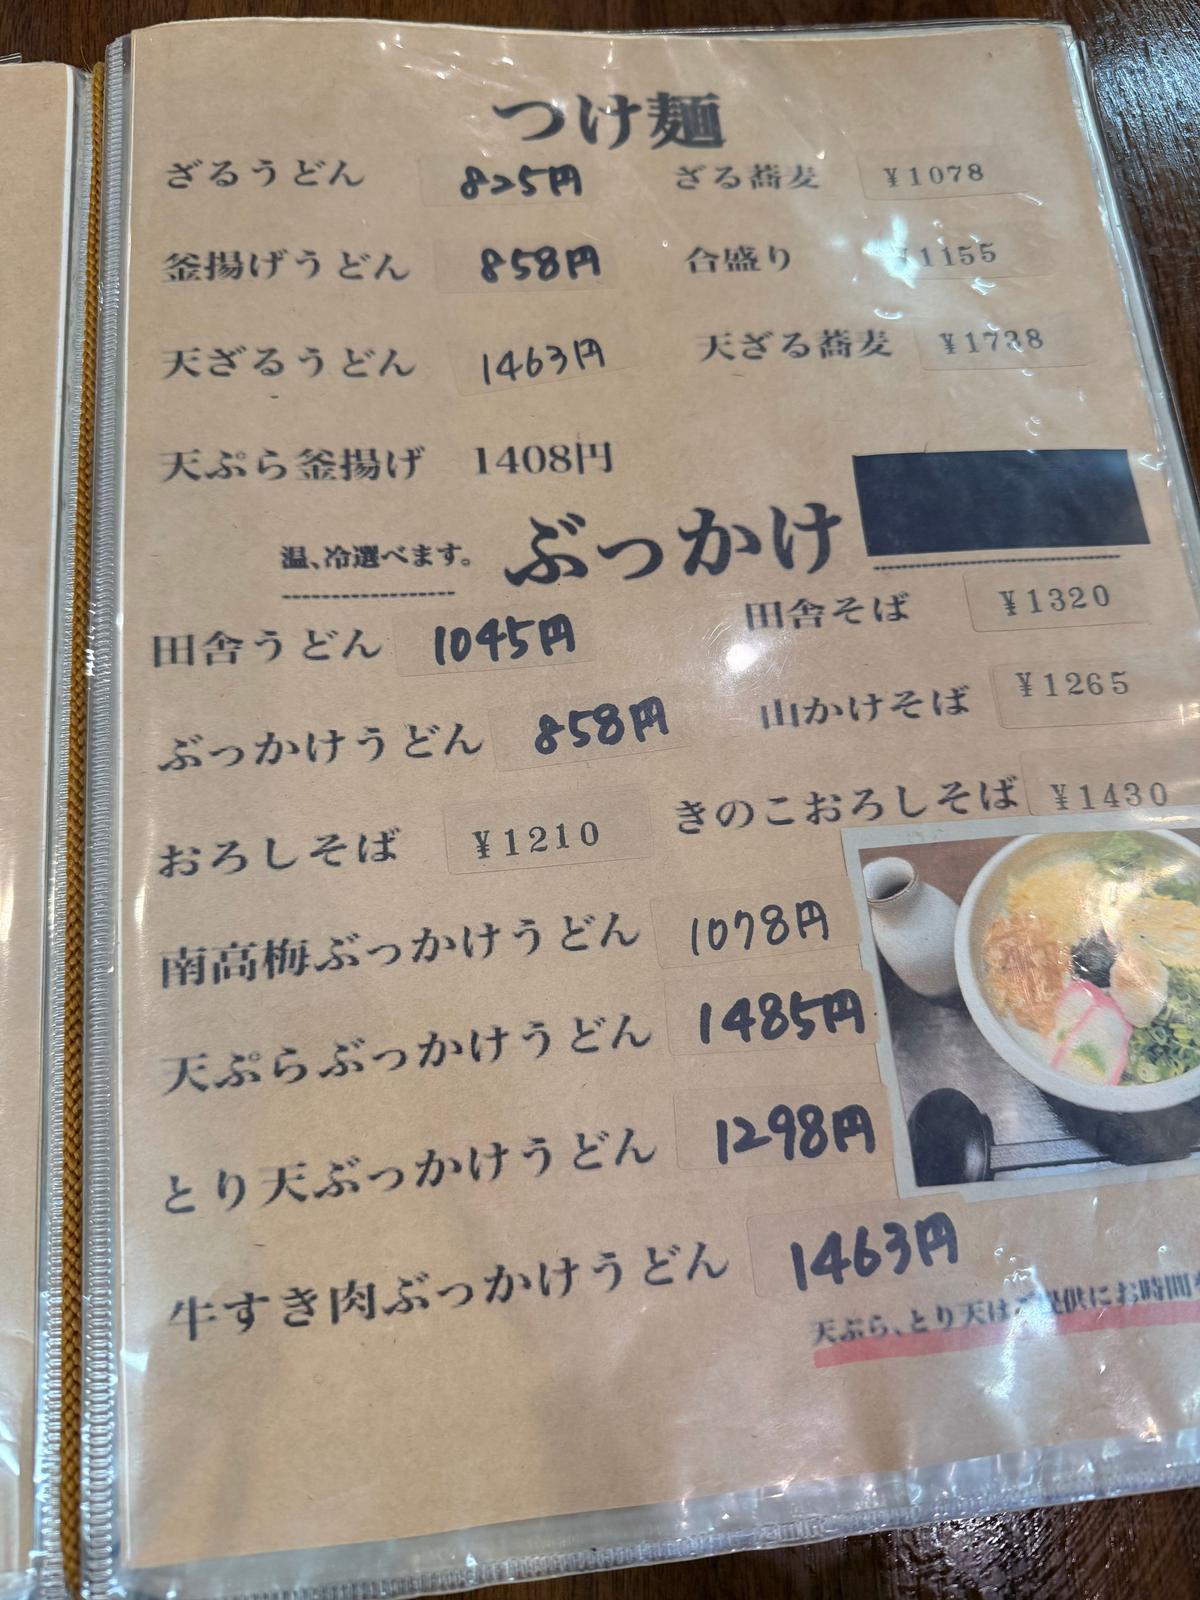 つけ麺
ざるうどん 825円 ざる蕎麦 ¥1078
釜揚げうどん 858円 合盛り ¥1155
天ざるうどん 1463円 天ざる蕎麦 ¥1738
天ぷら釜揚げ 1408円
温、冷選べます。 ぶっかけ
田舎うどん 1045円 田舎そば ¥1320
ぶっかけうどん 858円 山かけそば ¥1265
おろしそば ¥1210 きのこおろしそば ¥1430
南高梅ぶっかけうどん 1078円
天ぷらぶっかけうどん 1485円
とり天ぶっかけうどん 1298円
牛すき肉ぶっかけうどん 1463円
天ぷら、とり天はご提供にお時間